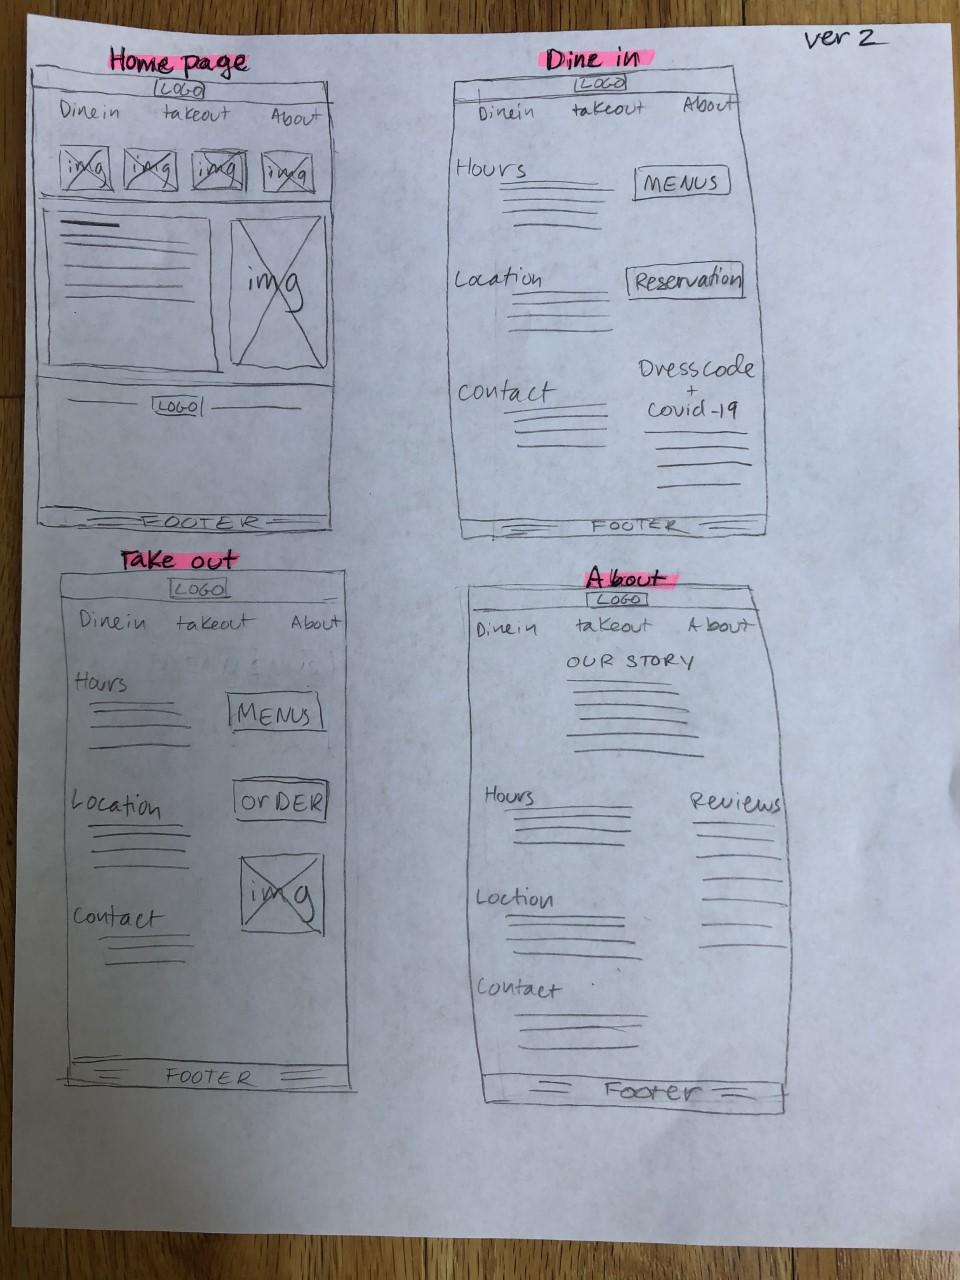 ver 2
Home page
LOGO
Dinein takeout About
img img img img
img
LOGO
FOOTER
Dine in
LOGO
Dinein takeout About
Hours
MENUS
Location
Reservation
Contact
Dresscode
+
Covid-19
FOOTER
Take out
LOGO
Dinein takeout About
Hours
MENUS
Location
OrDER
img
Contact
FOOTER
About
LOGO
Dinein takeout About
OUR STORY
Hours
Reviews
Loction
Contact
Footer